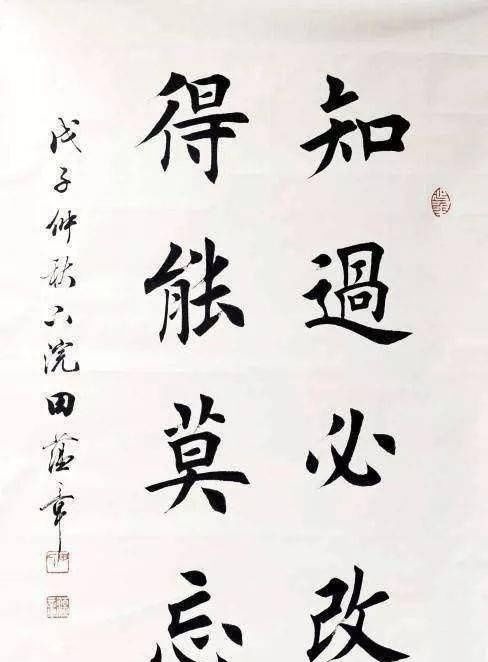 知過必改
得能莫忘
戊子仲秋下浣田蘊章